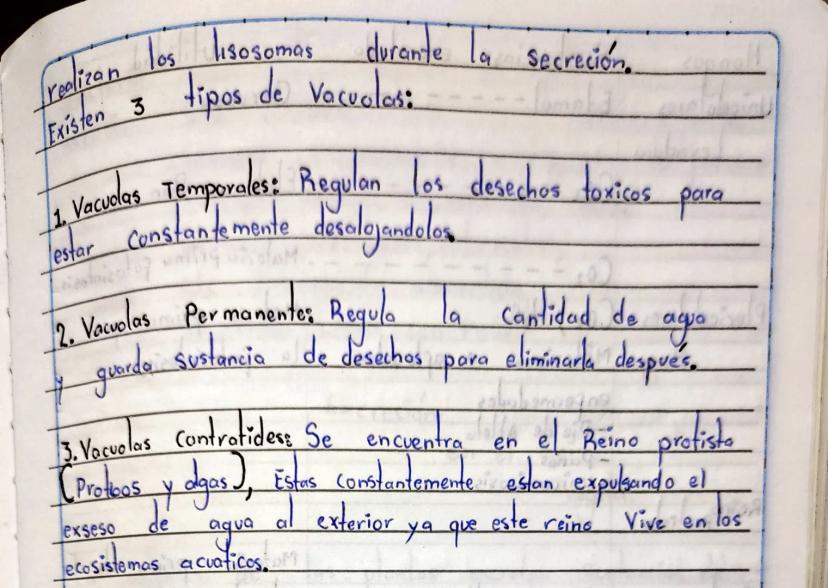 realizan los lisosomas durante la secreción.
Existen 3 tipos de Vacuolas:
1. Vacuolas Temporales: Regulan los desechos toxicos para
estar constantemente desalojandolos.
2. Vacuolas Permanente: Regula la cantidad de agua
y guarda sustancia de desechos para eliminarla después.
3. Vacuolas Contratides: Se encuentra en el Reino protista
(Protbos y algas), Estas constantemente estan expulsando el
exseso de agua al exterior ya que este reino Vive en los
ecosistemas acuaticos.